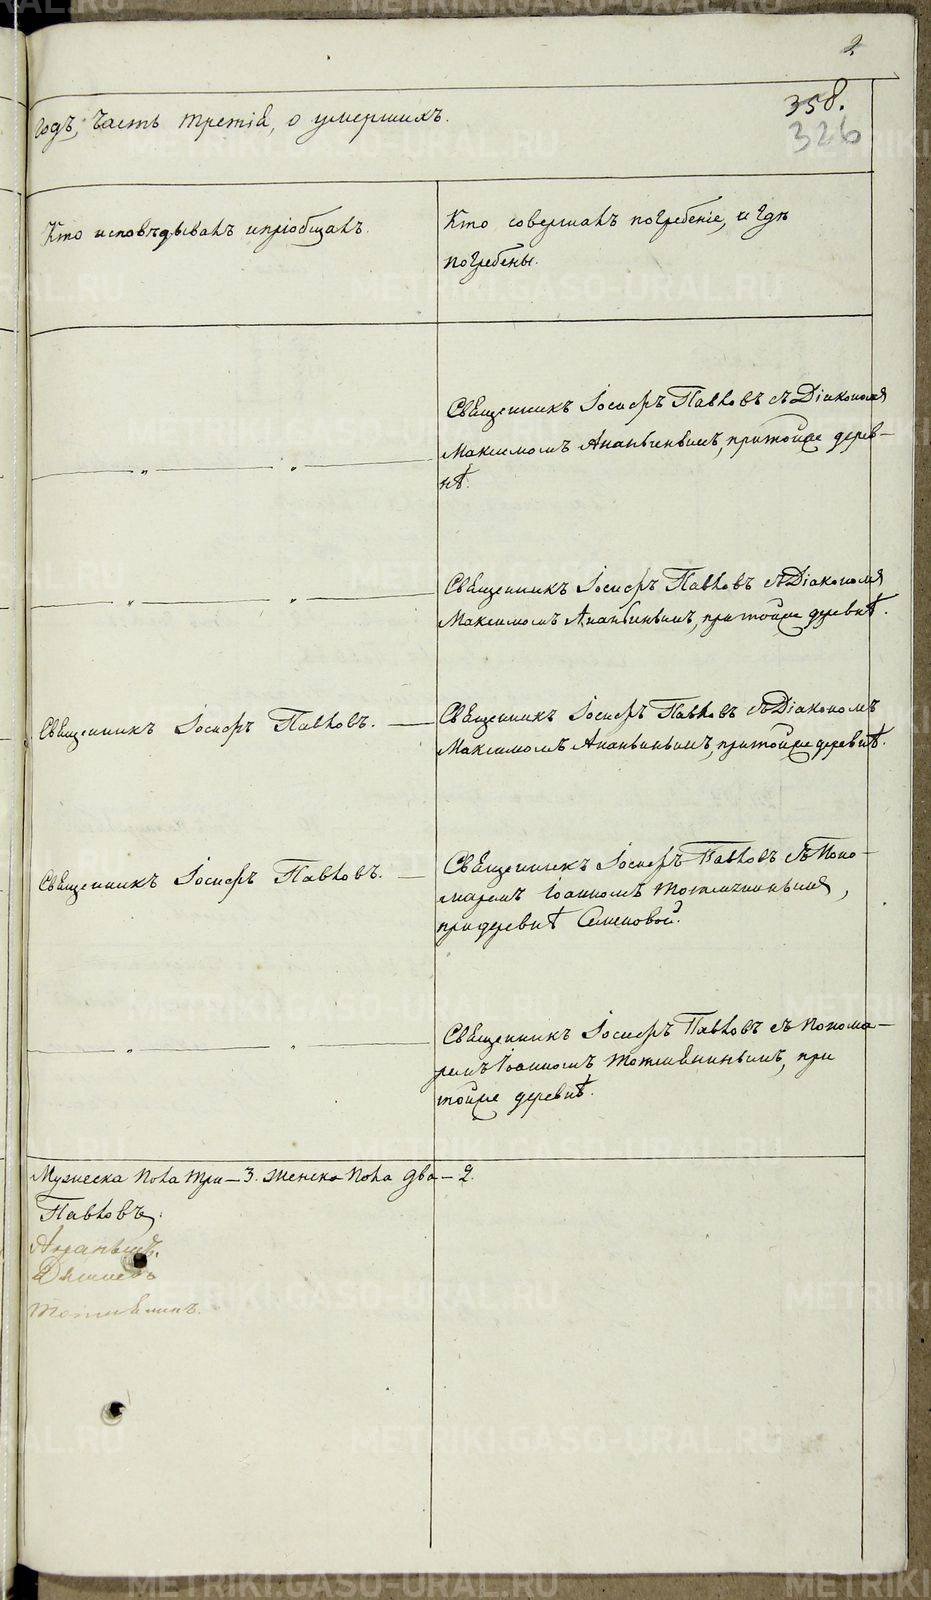 2.
358.
326
годъ, Часть третія, о умершихъ.
Кто исповѣдывалъ и пріобщалъ.
Кто совершалъ погребеніе, и гдѣ
погребены.
Священникъ Іосифъ Павловъ съ Діакономъ
Максимомъ Ананьинымъ, при той же дерев-
нѣ.
Священникъ Іосифъ Павловъ съ Діакономъ
Максимомъ Ананьинымъ, при той же деревнѣ.
Священникъ Іосифъ Павловъ.
Священникъ Іосифъ Павловъ съ Діакономъ
Максимомъ Ананьинымъ, при той же деревнѣ.
Священникъ Іосифъ Павловъ.
Священникъ Іосифъ Павловъ съ Поно-
маремъ Іоанномъ
при деревнѣ Семеновой.
Священникъ Іосифъ Павловъ съ Понома-
ремъ Іоанномъ при
той же деревнѣ.
Мужеска пола три – 3. женска пола два – 2.
Павловъ.
Ананьинъ.
METRIKI.GASO-URAL.RU